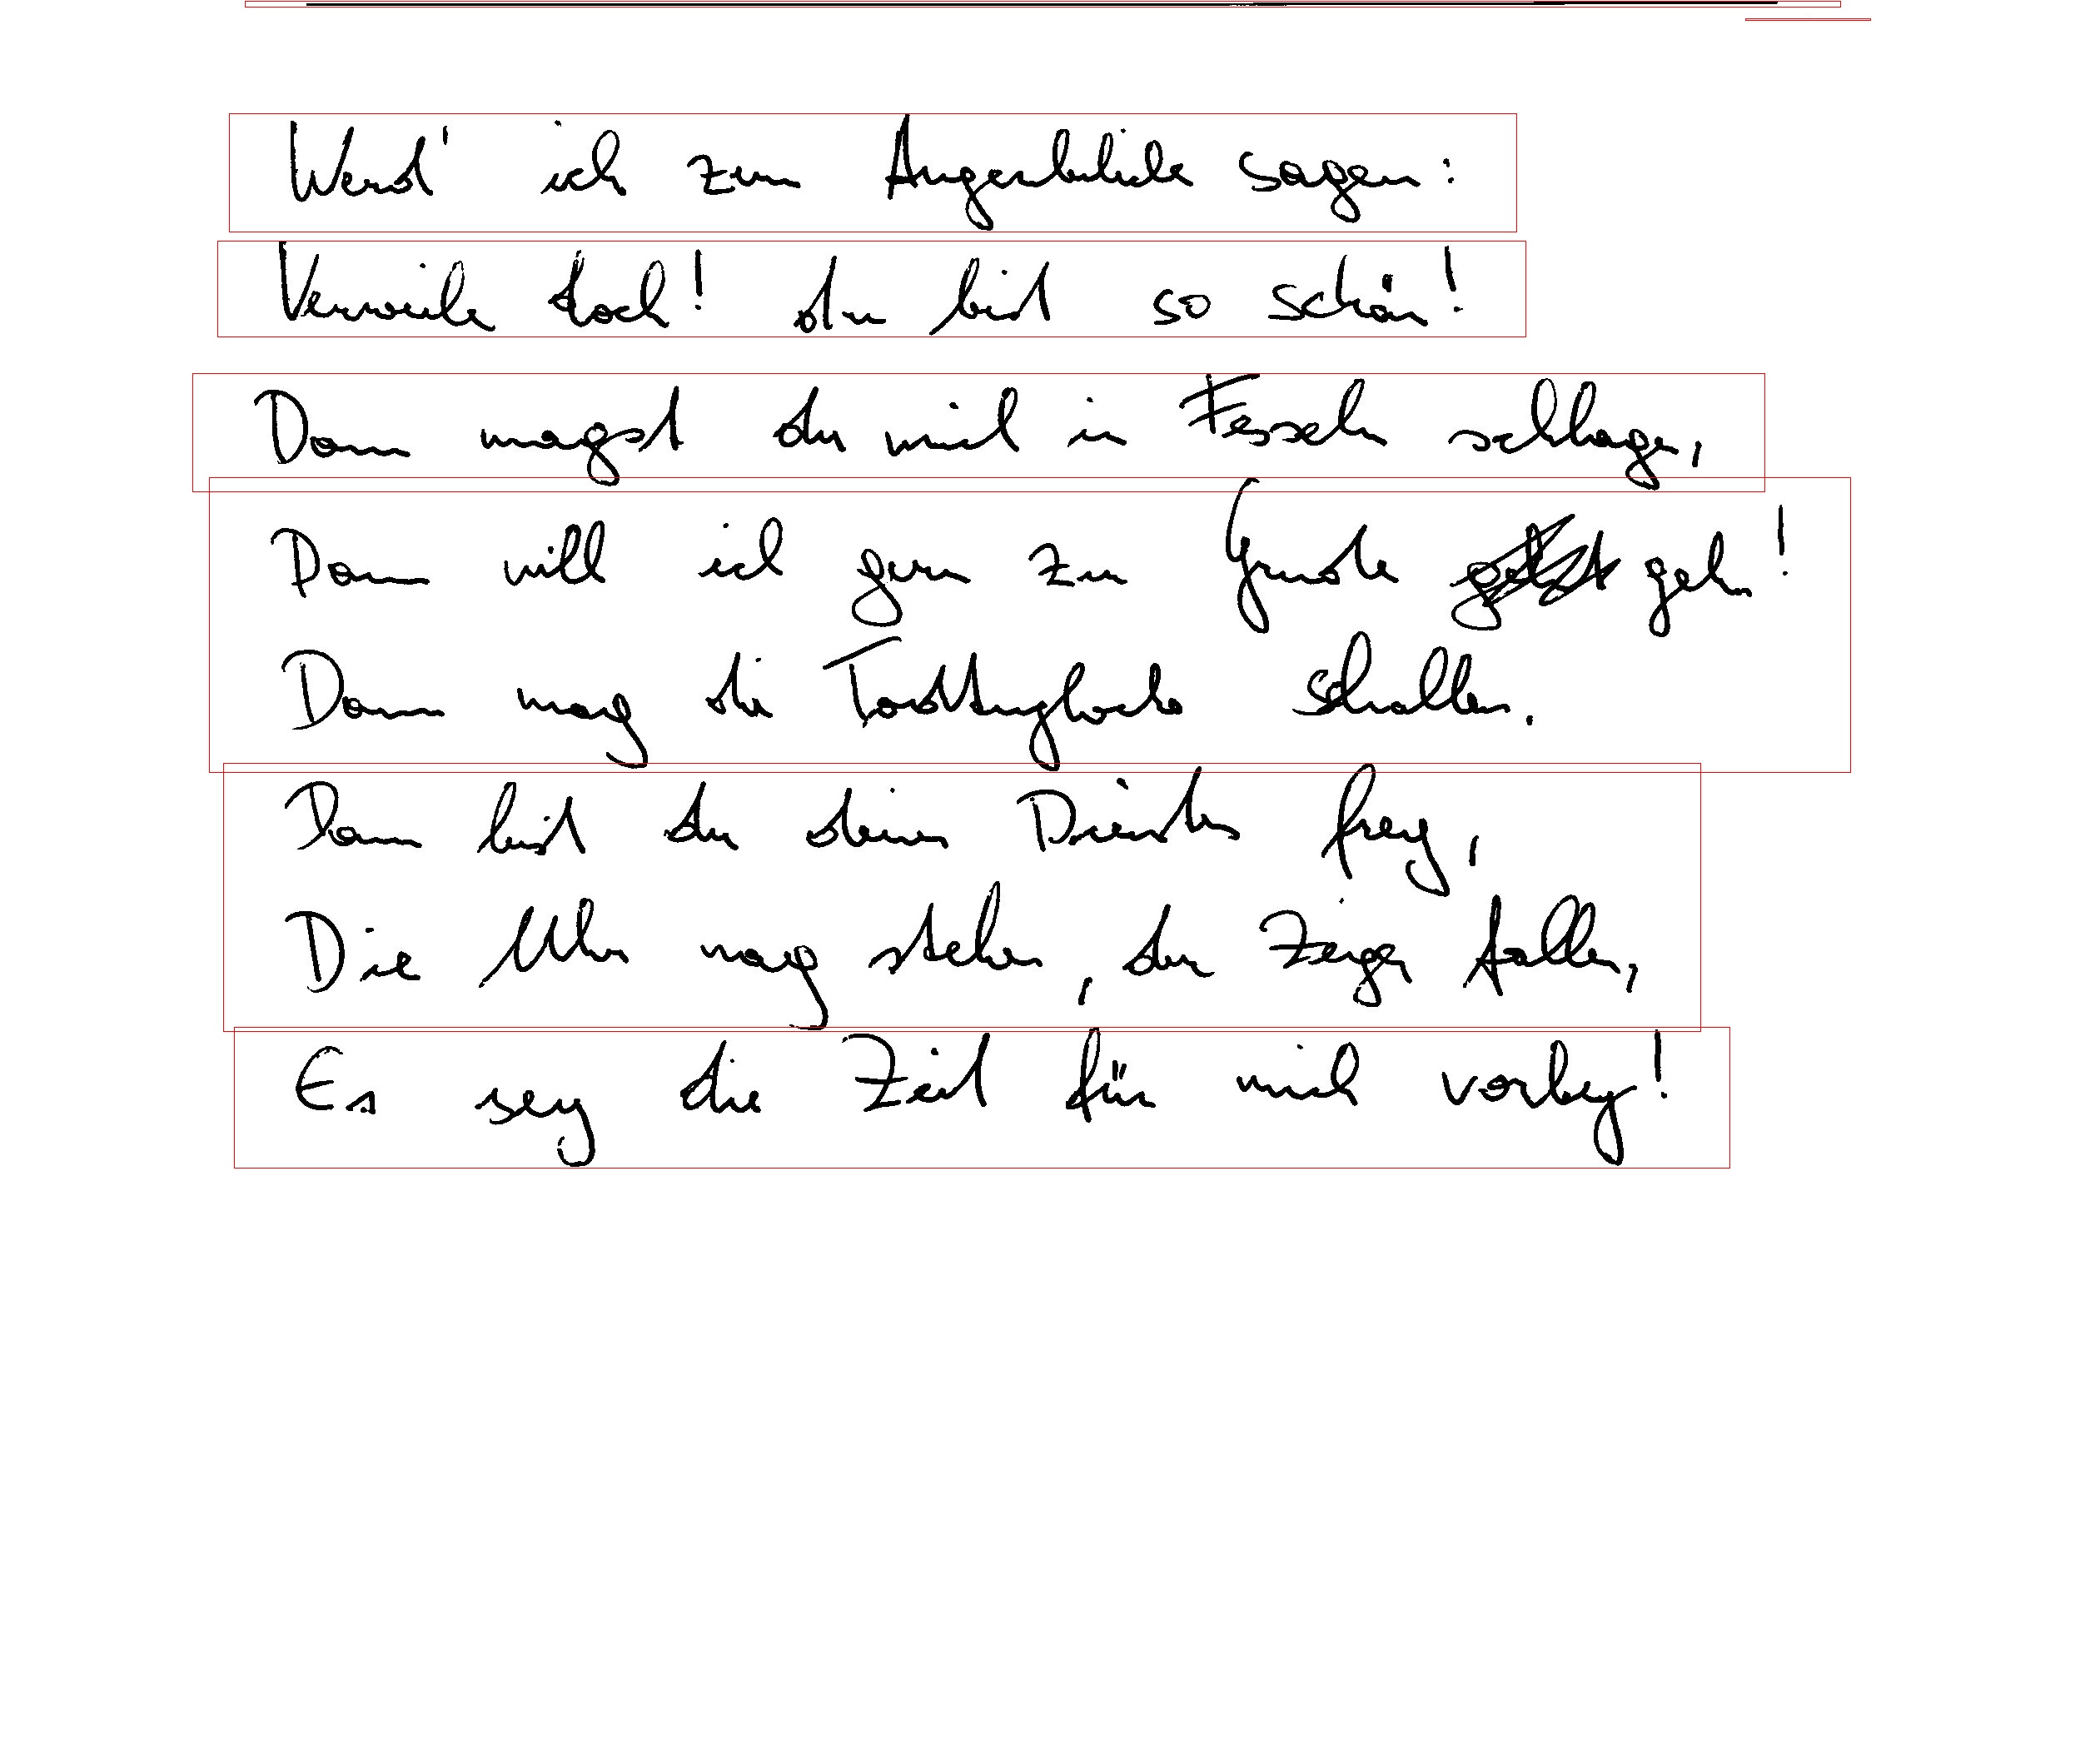 Werd' ich zum Augenblicke sagen:
Verweile doch! du bist so schön!
Dann magst du mich in Fesseln schlagen,
Dann will ich gern zu Grunde gehn!
Dann mag die Todtenglocke schallen.
Dann bist du deines Dienstes frey,
Die Uhr mag stehen, der Zeiger fallen,
Es sey die Zeit für mich vorbey!